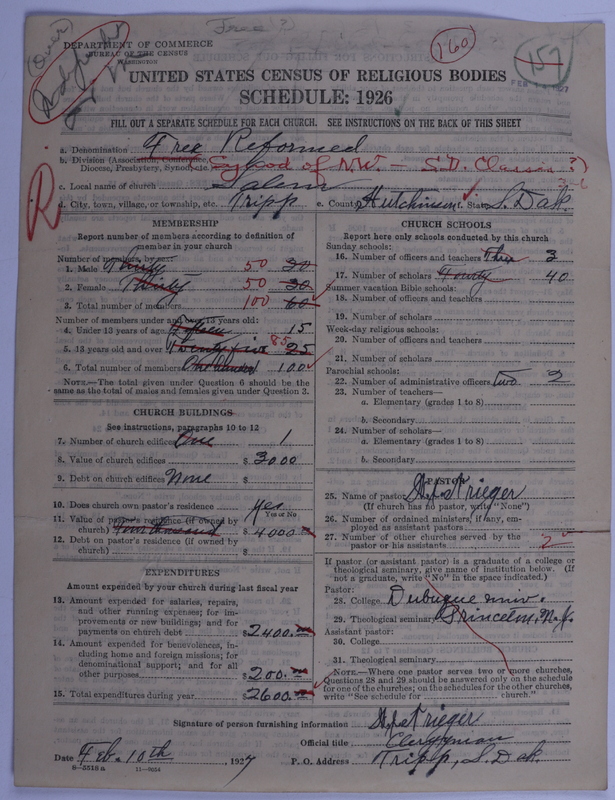 Free (?)
(over)
160
157
DEPARTMENT OF COMMERCE
BUREAU OF THE CENSUS
WASHINGTON
UNITED STATES CENSUS OF RELIGIOUS BODIES
SCHEDULE: 1926
FILL OUT A SEPARATE SCHEDULE FOR EACH CHURCH. SEE INSTRUCTIONS ON THE BACK OF THIS SHEET
a. Denomination Free Reformed
b. Division (Association, Conference,
Diocese, Presbytery, Synod, etc. (Synod of N.W. - S.D. Classis ?)
c. Local name of church Salem
d. City, town, village, or township, etc. Tripp e. County Hutchinson f. State S. Dak.
R
MEMBERSHIP
Report number of members according to definition of
member in your church
Number of members, by sex:
1. Male Thirty 50 30
2. Female Thirty 50 30
3. Total number of members 100 60
Number of members under and over 13 years old:
4. Under 13 years of age Fifteen 15
5. 13 years old and over Twenty five 85 25
6. Total number of members One hundred 100
NOTE.—The total given under Question 6 should be the
same as the total of males and females given under Question 3.
CHURCH BUILDINGS
See instructions, paragraphs 10 to 12
7. Number of church edifices One 1
8. Value of church edifices $ 3000
9. Debt on church edifices None $
10. Does church own pastor's residence? Yes
Yes or No
11. Value of pastor's residence (if owned by
church) Four thousand $ 4000
12. Debt on pastor's residence (if owned by
church) $
EXPENDITURES
Amount expended by your church during last fiscal year
13. Amount expended for salaries, repairs,
and other running expenses; for im-
provements or new buildings; and for
payments on church debt $ 2400.
14. Amount expended for benevolences, in-
cluding home and foreign missions; for
denominational support; and for all
other purposes $ 200.
15. Total expenditures during year $ 2600.
CHURCH SCHOOLS
Report here only schools conducted by this church
Sunday schools:
16. Number of officers and teachers Three 3
17. Number of scholars Fourty 40
Summer vacation Bible schools:
18. Number of officers and teachers
19. Number of scholars
Week-day religious schools:
20. Number of officers and teachers
21. Number of scholars
Parochial schools:
22. Number of administrative officers Two 2
23. Number of teachers—
a. Elementary (grades 1 to 8)
b. Secondary
24. Number of scholars—
a. Elementary (grades 1 to 8)
b. Secondary
PASTOR
25. Name of pastor Krieger
(If church has no pastor, write "None")
26. Number of ordained ministers, if any, em-
ployed as assistant pastors
27. Number of other churches served by the
pastor or his assistants 2
If pastor (or assistant pastor) is a graduate of a college or
theological seminary, give name of institution below. (If
not a graduate, write "No" in the space indicated.)
Pastor:
28. College Dubuque Univ.
29. Theological seminary Princeton, N.J.
Assistant pastor:
30. College
31. Theological seminary
NOTE.—Where one pastor serves two or more churches,
Questions 28 and 29 should be answered only on the schedule
for one of the churches; on the schedules for the other churches,
write "See schedule for church."
Signature of person furnishing information Krieger
Official title Clergyman
Date Feb. 10th, 1927 P. O. Address Tripp, S. Dak.
8—5518a 11—9054